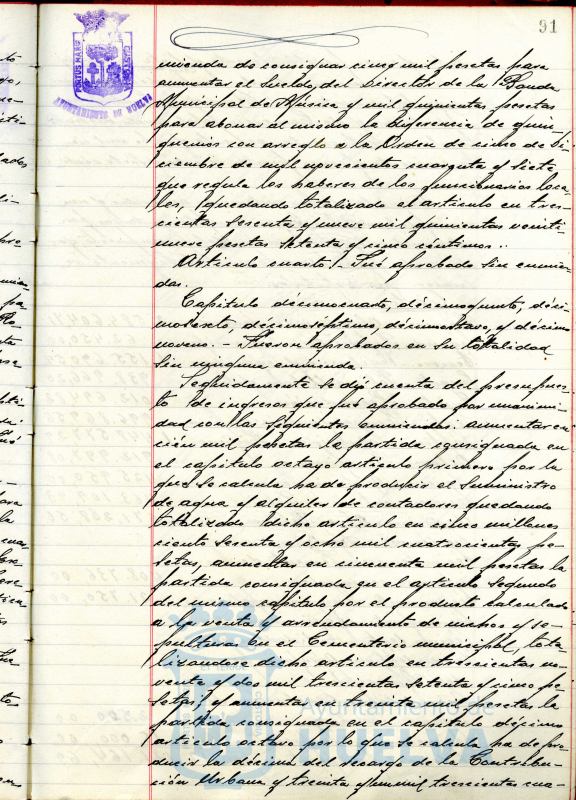 91
PORTUS MARIS CUSTODIA
AYUNTAMIENTO DE HUELVA
mienda de consignar cinco mil pesetas para
aumentar el sueldo, del Director de la Banda
Municipal de Música y mil quinientas pesetas
para abonar al mismo la diferencia de quin-
quenios con arreglo a la Orden de cinco de Di-
ciembre de mil novecientos cuarenta y siete
que regula los haberes de los funcionarios loca-
les, quedando totalizado el artículo en tres-
cientas sesenta y nueve mil quinientas veinti-
nueve pesetas setenta y cinco céntimos.
Artículo cuarto.- Fué aprobado sin enmien-
das.
Capítulo decimocuarto, décimoquinto, déci-
mosexto, décimoséptimo, décimoctavo, y décimo
noveno.- Fueron aprobados en su totalidad
sin ninguna enmienda.
Seguidamente se dió cuenta del presupues-
to de ingresos que fué aprobado por unanimi-
dad con las siguientes enmiendas: aumentar en
cien mil pesetas la partida consignada en
el capítulo octavo artículo primero por lo
que se calcula ha de producir el suministro
de agua y alquiler de contadores quedando
totalizado dicho artículo en cinco millones
ciento sesenta y ocho mil cuatrocientas pe-
setas, aumentar en cincuenta mil pesetas la
partida consignada en el artículo segundo
del mismo capítulo por el producto calculado
a la venta y arrendamiento de nichos y se-
pulturas en el Cementerio municipal, tota-
lizandose dicho artículo en trescientas no-
venta y dos mil trescientas setenta y cinco pe-
setas; y aumentar en treinta mil pesetas la
partida consignada en el capítulo décimo
artículo octavo por lo que se calcula ha de pro-
ducir la décima del recargo de la Contribu-
ción Urbana y treinta y un mil trescientas cua-
Ayuntamiento de
HUELVA